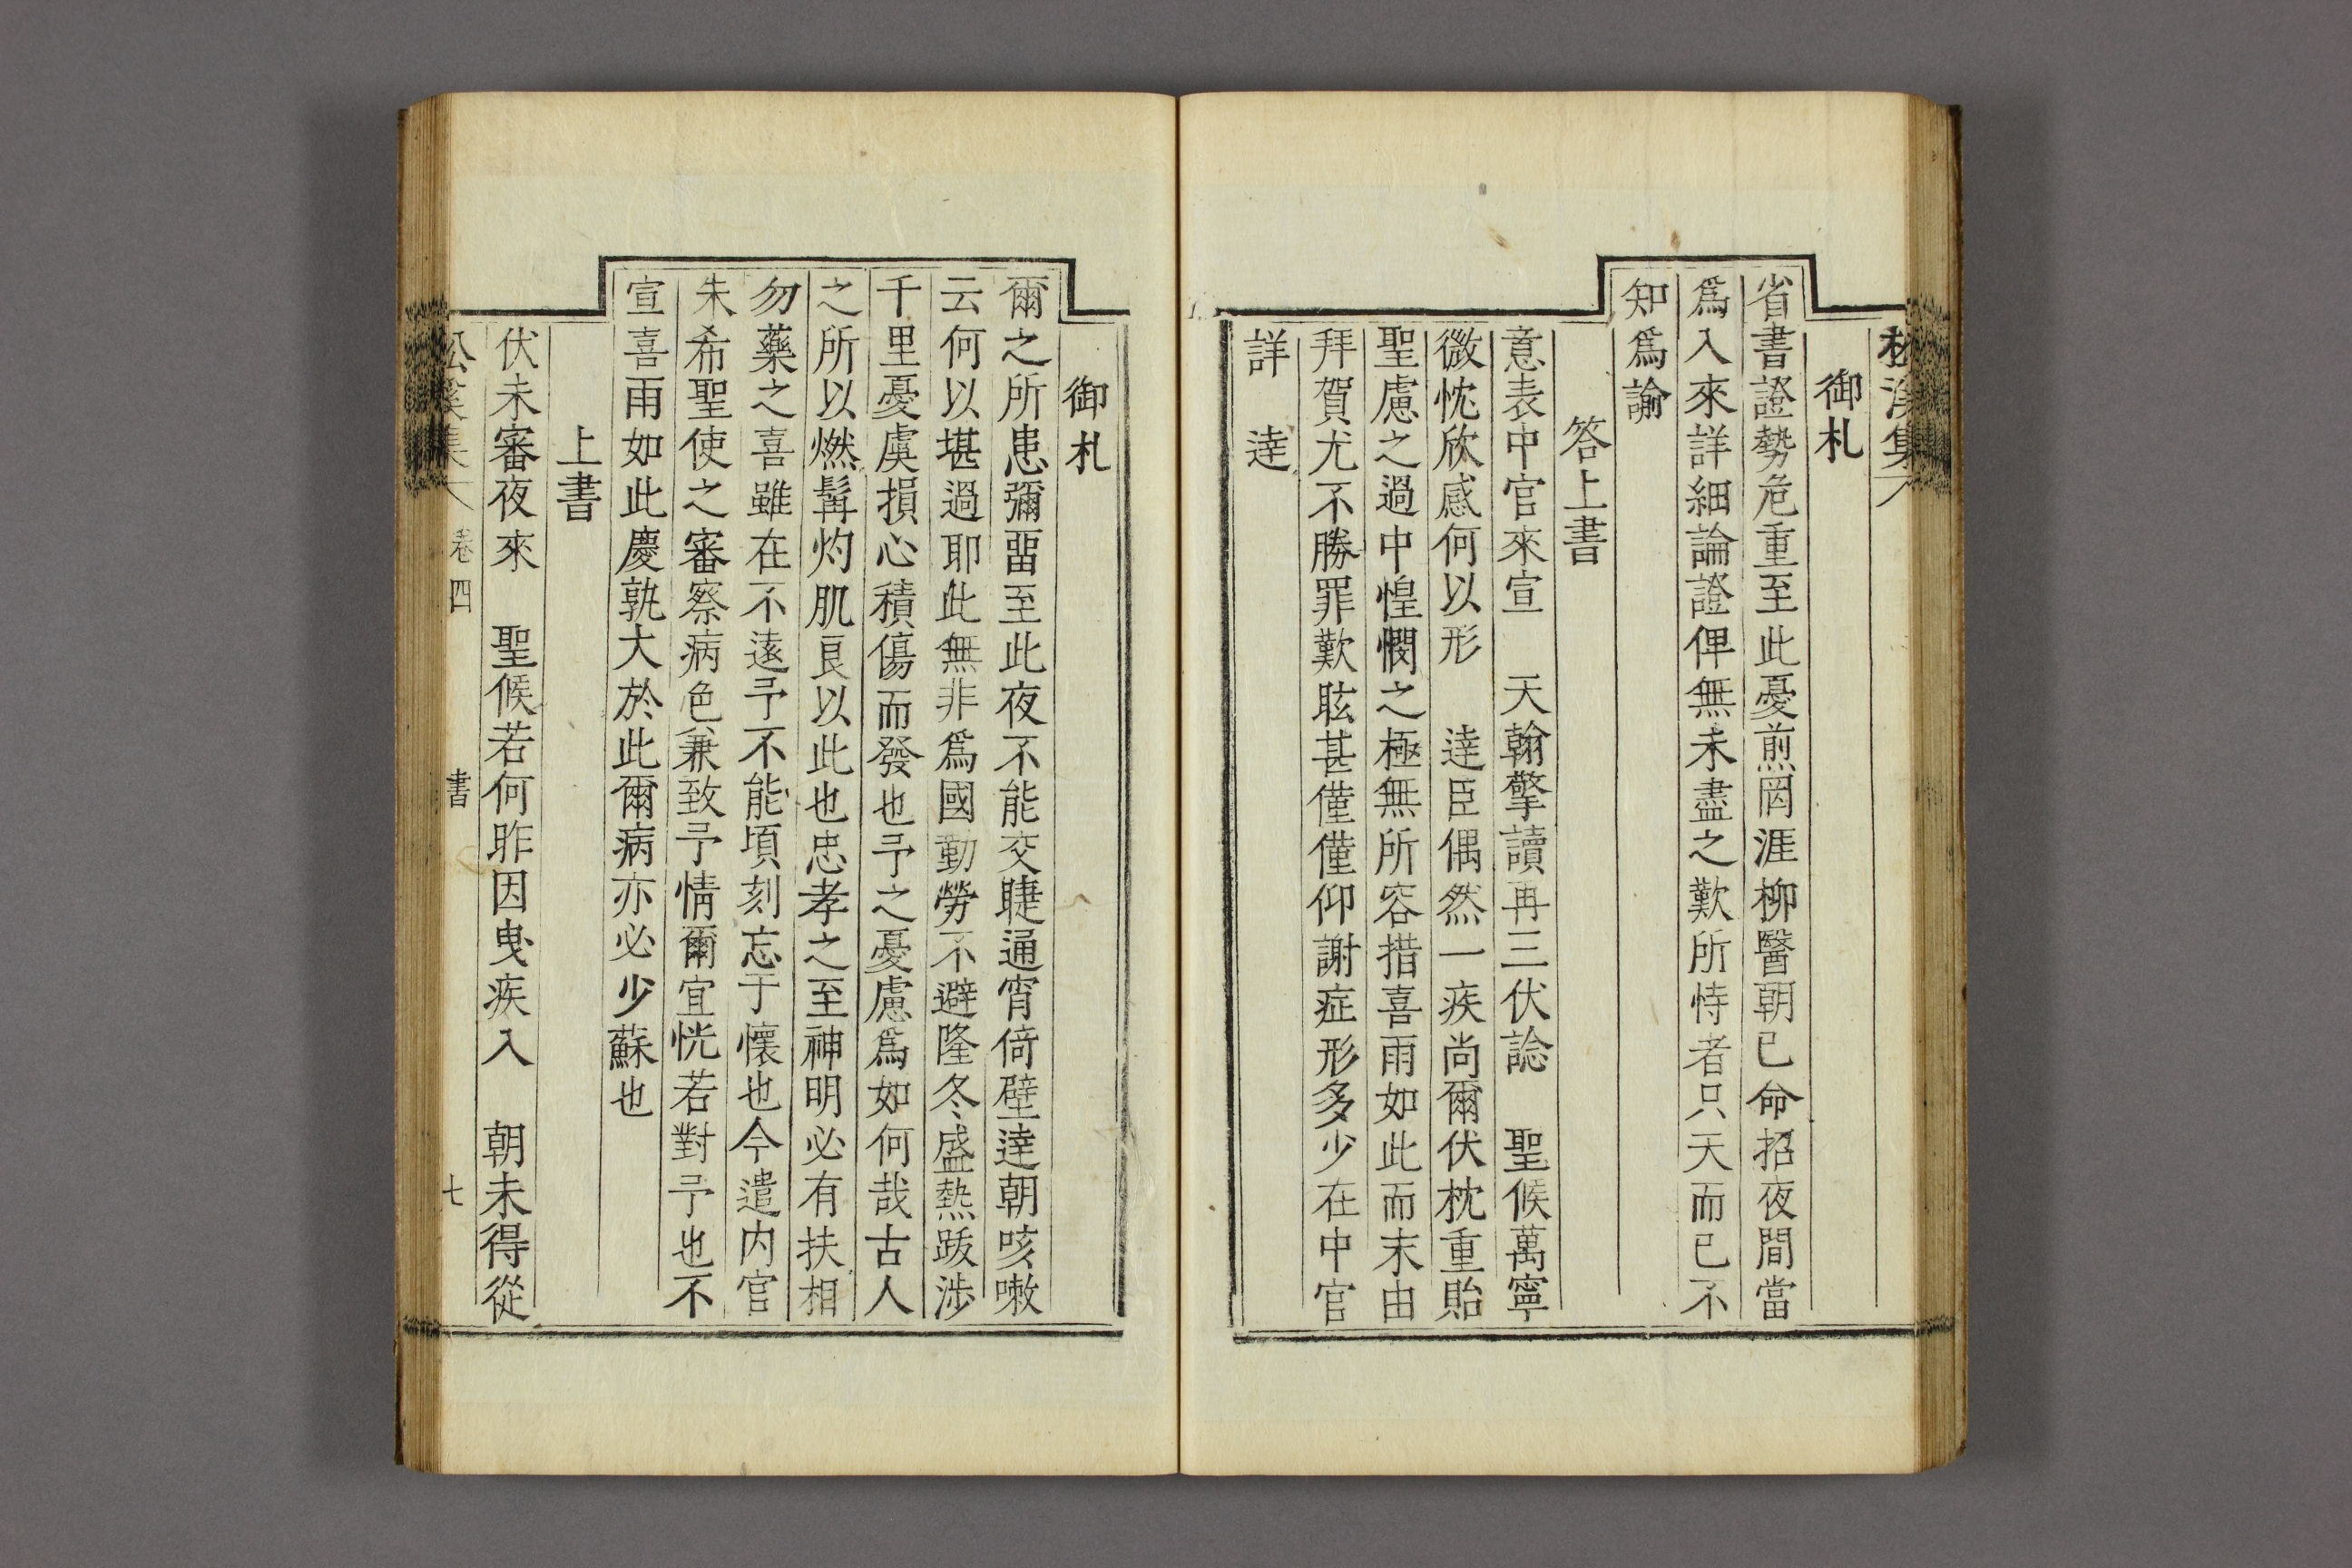 松溪集
御札
省書證勢危重至此憂煎罔涯柳醫朝已命招夜間當
爲入來詳細論證俾無未盡之歎所恃者只天而已不
知爲諭
答上書
意表中官來宣 天翰擎讀再三伏諗 聖候萬寧
微忱欣感何以形 達臣偶然一疾尚爾伏枕重貽
聖慮之過中惶憫之極無所容措喜雨如此而末由
拜賀尤不勝罪歎眩甚僅僅仰謝症形多少在中官
詳達
御札
爾之所患彌留至此夜不能交睫通宵倚壁達朝咳嗽
云何以堪過耶此無非爲國勤勞不避隆冬盛熱跋涉
千里憂虞損心積傷而發也予之憂慮爲如何哉古人
之所以燃髯灼肌良以此也忠孝之至神明必有扶相
勿藥之喜雖在不遠予不能頃刻忘于懷也今遣内官
朱希聖使之審察病色兼致予情爾宜恍若對予也不
宣喜雨如此慶孰大於此爾病亦必少蘇也
上書
伏未審夜來 聖候若何昨因曳疾入 朝未得從
松溪集 卷四 書 七